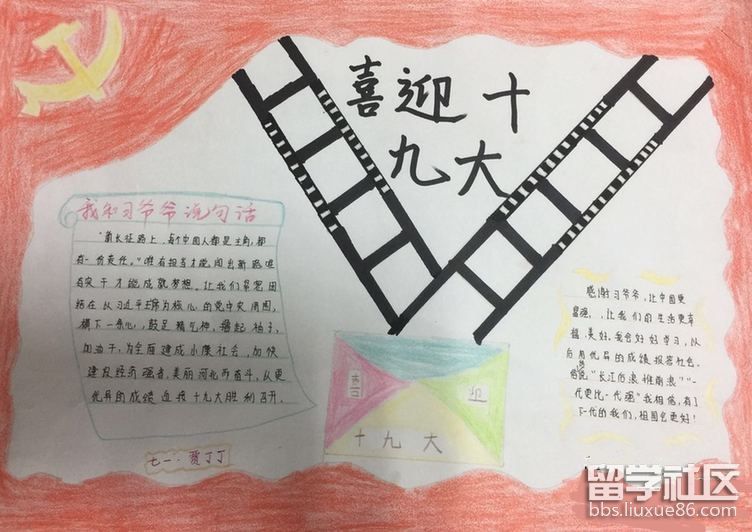 喜迎十
九大
我和习爷爷说句话
"新长征路上,每个中国人都是主角,都
有一份责任。"唯有担当才能闯出新路,唯
有实干才能成就梦想。让我们紧密团
结在以习近平主席为核心的党中央周围,
横下一条心,鼓足精气神,撸起袖子,
加油干,为全面建成小康社会,加快
建设经济强省、美丽河北而奋斗,以更
优异的成绩迎接十九大胜利召开。
七一·贾丁丁
喜 迎
十九大
感谢习爷爷,让中国更
富强,让我们的生活更幸
福、美好。我会好好学习,以
后用优异的成绩报答社会。
俗说"长江后浪推前浪""一
代更比一代强"我相信,有了
下一代的我们,祖国会更好!
留学社区
bbs.liuxue86.com